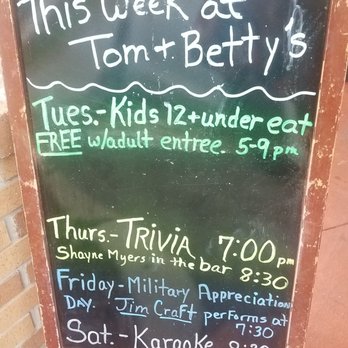 This Week at
Tom + Betty's
Tues.-Kids 12+under eat
FREE w/adult entree. 5-9 pm
Thurs.- TRIVIA 7:00 pm
Shayne Myers in the bar 8:30
Friday-Military Appreciation
DAY. Jim Craft performs at
7:30
Sat.- Karaoke